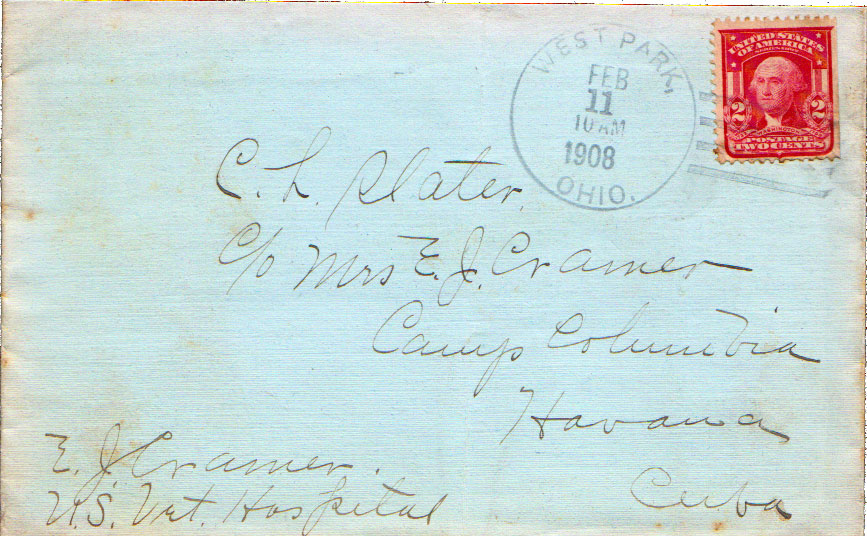 WEST PARK,
FEB
11
10 AM
1908
OHIO.
UNITED STATES
OF AMERICA
2 2
WASHINGTON
POSTAGE
TWO CENTS
C. L. Slater.
C/o Mrs E. J. Cramer
Camp Columbia
Havana
Cuba
E. J. Cramer.
U.S. Vet. Hospital